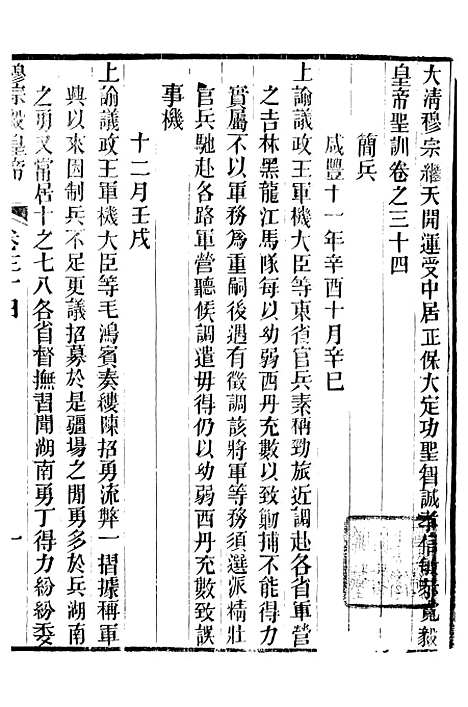 大清穆宗繼天開運受中居正保大定功聖智誠孝信敏恭寬毅
皇帝聖訓卷之三十四
簡兵
咸豐十一年辛酉十月辛巳
上諭議政王軍機大臣等東省官兵素稱勁旅近調赴各省軍營
之吉林黑龍江馬隊每以幼弱西丹充數以致勦捕不能得力
實屬不以軍務為重嗣後遇有徵調該將軍等務須選派精壯
官兵馳赴各路軍營聽候調遣毋得仍以幼弱西丹充數致誤
事機
十二月壬戌
上諭議政王軍機大臣等毛鴻賓奏縷陳招勇流弊一摺據稱軍
興以來因制兵不足更議招募於是疆場之間勇多於兵湖南
之勇又當居十之七八各省督撫習聞湖南勇丁得力紛紛委
穆宗毅皇帝
卷三十四
一